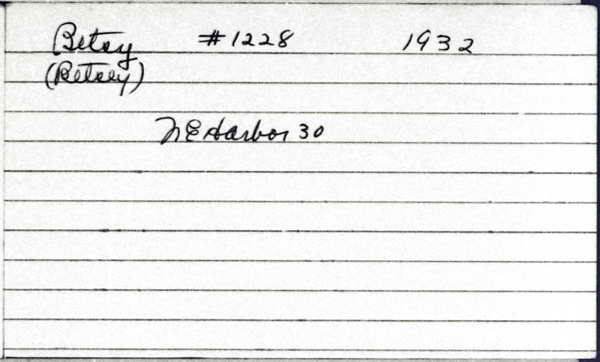 Betsy #1228 1932
(Betsey)
NE Harbor 30